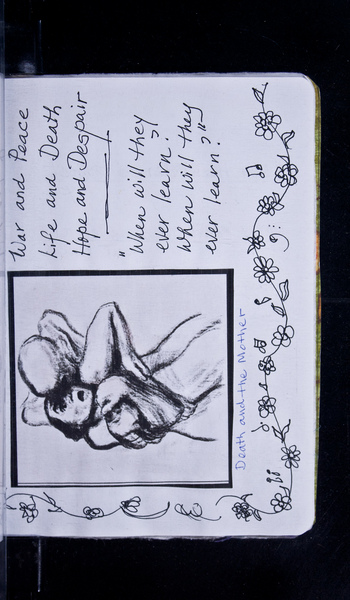 War and Peace
Life and Death
Hope and Despair
"When will they
ever learn?
When will they
ever learn?"
Death and the Mother